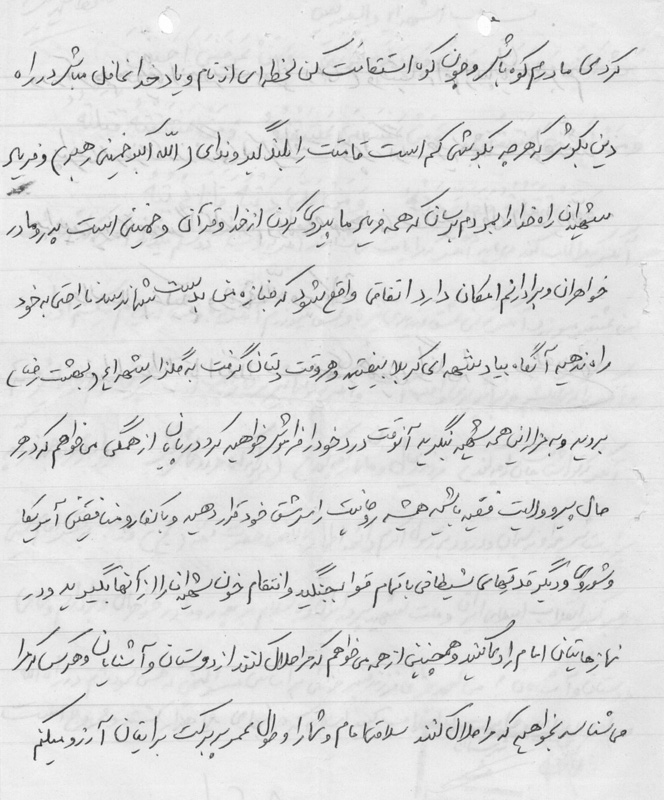 کردمی مادرم کوه باش و چون کوه استقامت کن لحظه ای از نام و یاد خدا غافل مباش در راه
دین بکوش که هرچه بکوشی کم است قامتت را بلند گیر و ندای (الله اکبر خمینی رهبر) و فریاد
شهیدان راه خدا را به مردم برسان که همه فریاد ما پیروی کردن از خدا و قرآن و خمینی است پدر و مادر
خواهران و برادرانم امکان دارد اتفاقی واقع شود که جنازه من بدست شما نرسد ناراحتی به خود
راه ندهید آنگاه بیاد شهدای کربلا بیفتید و هر وقت دلتان گرفت به گلزار شهداء (بهشت رضا)
بروید و به مزار این همه شهید بنگرید آنوقت درد خود را فراموش خواهید کرد در پایان از همگی می خواهم که در هر
حال پیرو ولایت فقیه باشید همیشه روحانیت را سرمشق خود قرار دهید و با کفار و منافقین آمریکا
و شوروی و دیگر قدرتهای شیطانی با تمام قوا بجنگید و انتقام خون شهیدان را از آنها بگیرید و در
نمازهایتان امام را دعا کنید و همچنین از همه می خواهم که مرا حلال کنند از دوستان و آشنایان و هرکس که مرا
می شناسد بخواهید که مرا حلال کنند سلامتی امام و شما را و طول عمر پر برکت برایتان آرزو میکنم